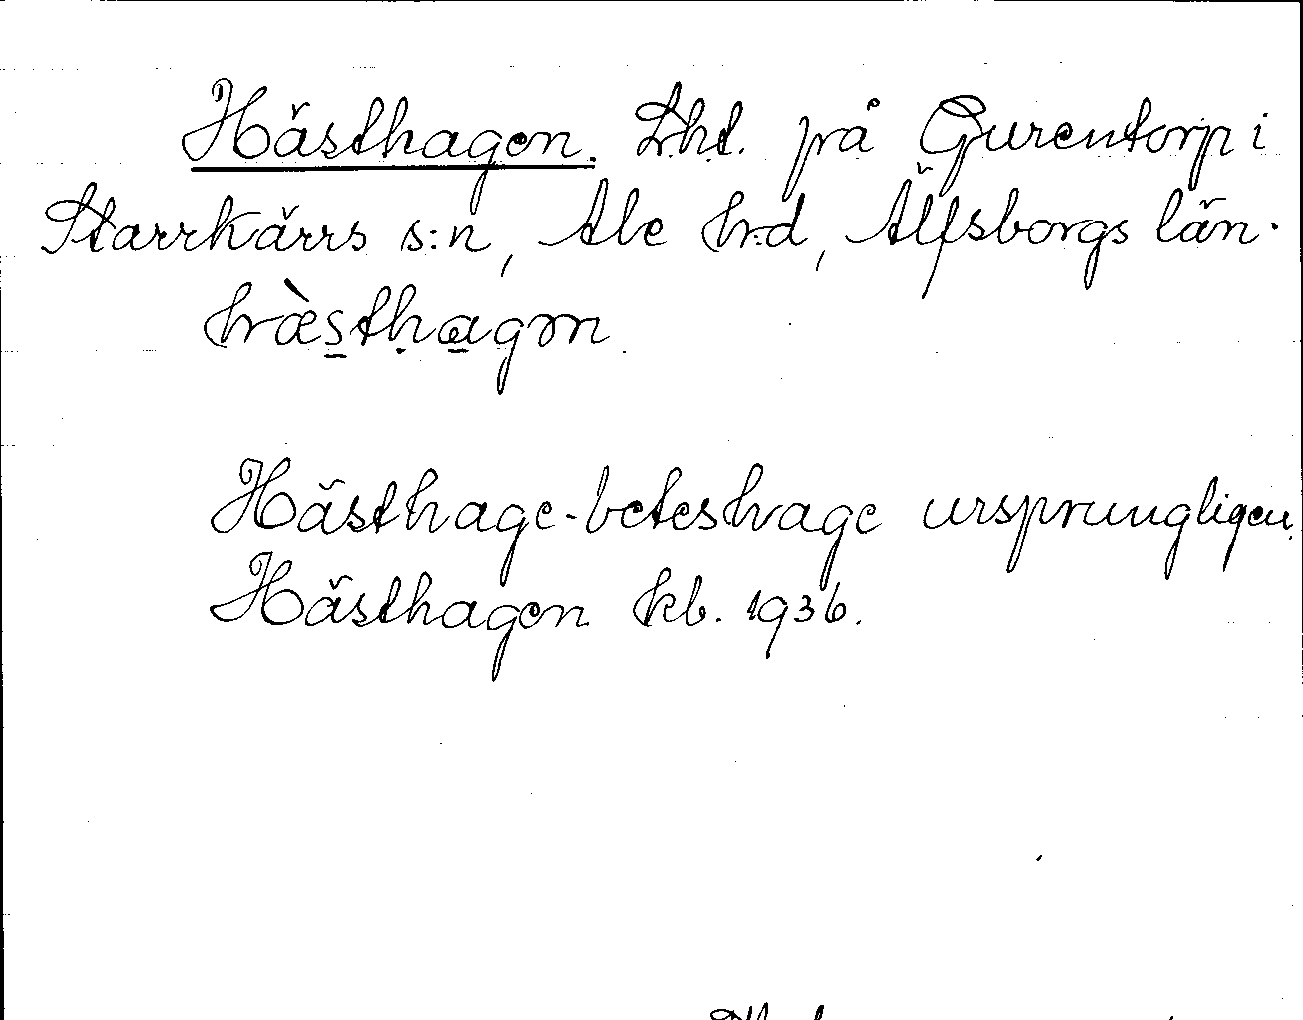 Hästhagen. Lht. på Gurentorp i
Starrkärrs s:n, Ale hrd, Älfsborgs län.
hæ̀sthagən
Hästhage - beteshage ursprungligen.
Hästhagen kb. 1936.